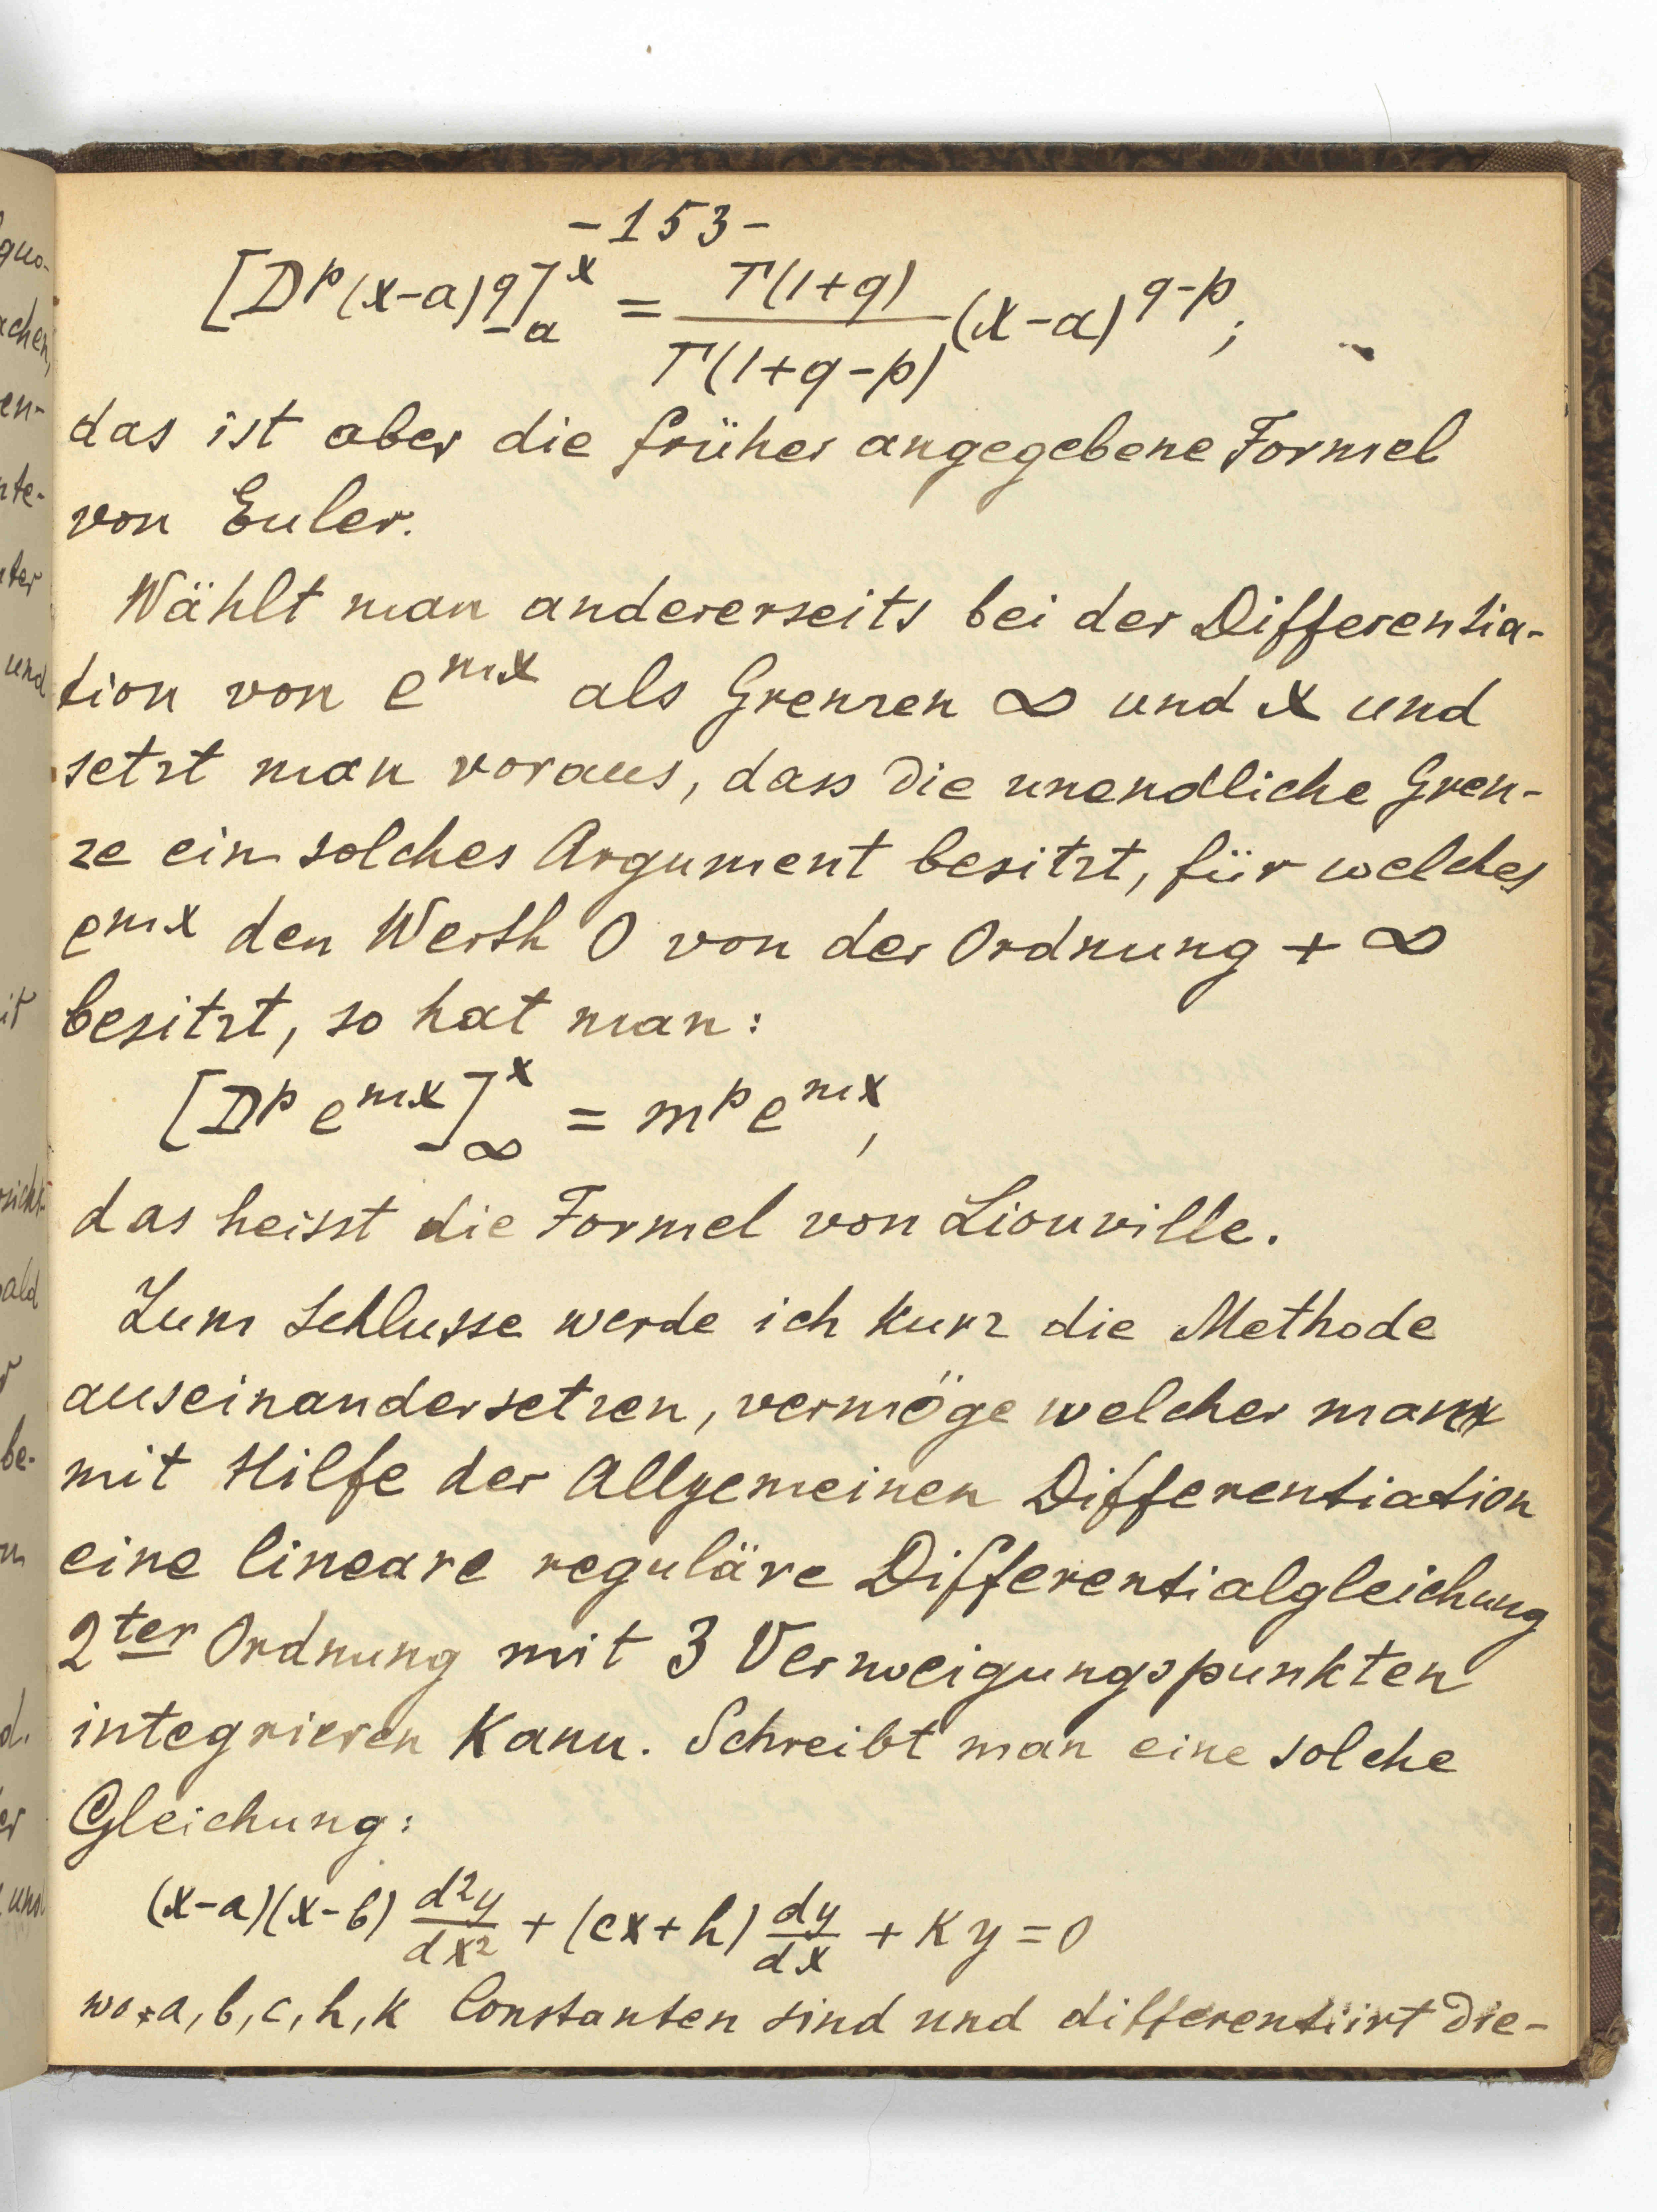 -153-
[D^p (x-a)^q]_a^x = Γ(1+q)/Γ(1+q-p) (x-a)^{q-p};
das ist aber die früher angegebene Formel
von Euler.
Wählt man andererseits bei der Differentia-
tion von e^{mx} als Grenzen ∞ und x und
setzt man voraus, dass die unendliche Gren-
ze ein solches Argument besitzt, für welches
e^{mx} den Werth 0 von der Ordnung + ∞
besitzt, so hat man:
[D^p e^{mx}]_∞^x = m^p e^{mx},
das heisst die Formel von Liouville.
Zum Schlusse werde ich kurz die Methode
auseinandersetzen, vermöge welcher man
mit Hilfe der Allgemeinen Differentiation
eine lineare reguläre Differentialgleichung
2ter Ordnung mit 3 Verzweigungspunkten
integrieren kann. Schreibt man eine solche
Gleichung:
(x-a)(x-b) d²y/dx² + (cx+h) dy/dx + ky = 0
wo a, b, c, h, k Constanten sind und differentiirt die-
quo-
achen,
en-
nte-
nter
und
it
ald
be-
d.
er
und